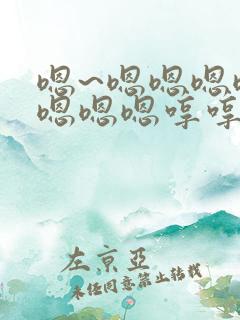 嗯~嗯嗯嗯
嗯嗯嗯哼哼
左京亞
未经同意禁止转载